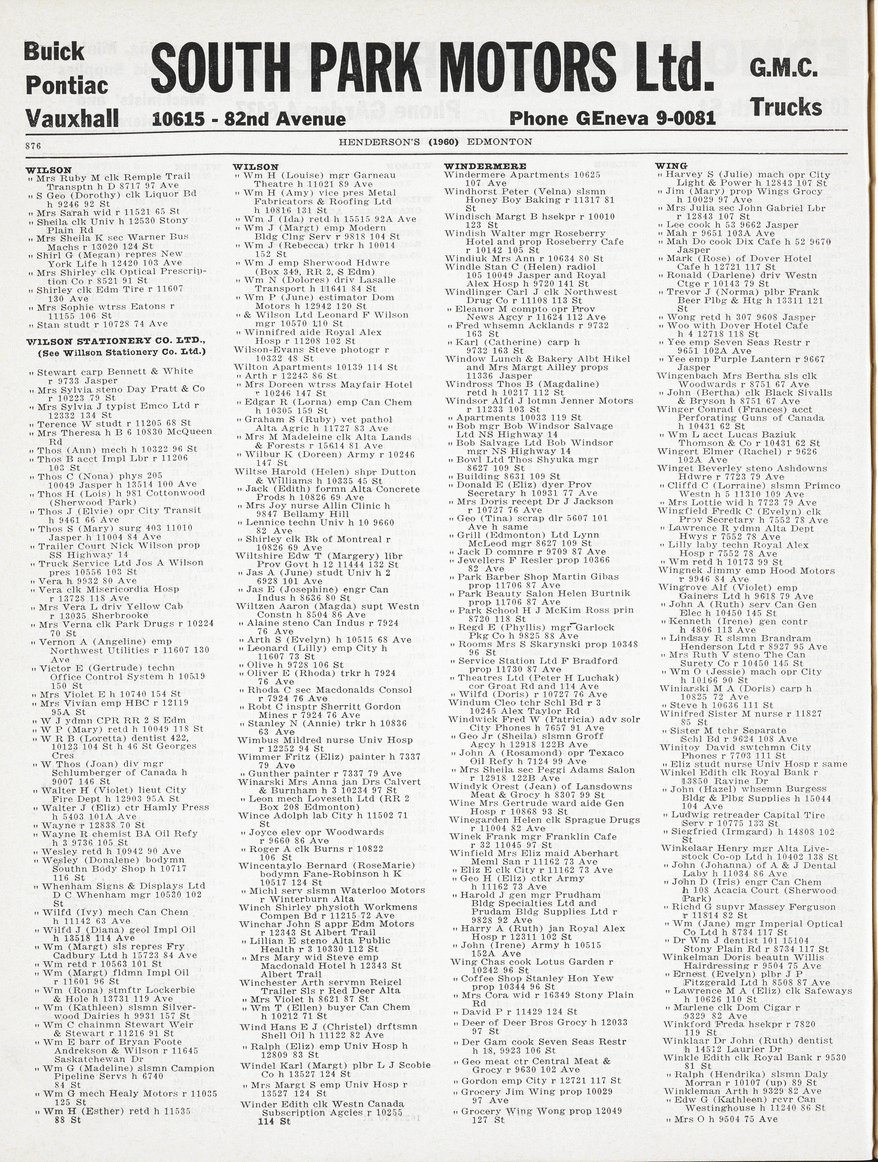 Buick
Pontiac
Vauxhall
SOUTH PARK MOTORS Ltd.
10615 - 82nd Avenue
Phone GEneva 9-0081
G.M.C.
Trucks
876
HENDERSON'S (1960) EDMONTON
WILSON
" Mrs Ruby M clk Remple Trail
Transptn h D 8717 97 Ave
" S Geo (Dorothy) clk Liquor Bd
h 9246 92 St
" Mrs Sarah wid r 11521 65 St
" Sheila clk Univ h 12530 Stony
Plain Rd
" Mrs Sheila K sec Warner Bus
Machs r 13020 124 St
" Shirl G (Megan) repres New
York Life h 12420 103 Ave
" Mrs Shirley clk Optical Prescrip-
tion Co r 8521 91 St
" Shirley clk Edm Tire r 11607
130 Ave
" Mrs Sophie wtrss Eatons r
11155 106 St
" Stan studt r 10728 74 Ave
WILSON STATIONERY CO. LTD.,
(See Willson Stationery Co. Ltd.)
" Stewart carp Bennett & White
r 9733 Jasper
" Mrs Sylvia steno Day Pratt & Co
r 10223 79 St
" Mrs Sylvia J typist Emco Ltd r
12332 134 St
" Terence W studt r 11205 68 St
" Mrs Theresa h B 6 10830 McQueen
Rd
" Thos (Ann) mech h 10322 96 St
" Thos B acct Impl Lbr r 11206
103 St
" Thos C (Nona) phys 205
10049 Jasper h 13514 100 Ave
" Thos H (Lois) h 981 Cottonwood
(Sherwood Park)
" Thos J (Elvie) opr City Transit
h 9461 66 Ave
" Thos S (Mary) surg 403 11010
Jasper h 11004 84 Ave
" Trailer Court Nick Wilson prop
SS Highway 14
" Truck Service Ltd Jos A Wilson
pres 10556 103 St
" Vera h 9932 80 Ave
" Vera clk Misericordia Hosp
r 13728 118 Ave
" Mrs Vera L driv Yellow Cab
r 13035 Sherbrooke
" Mrs Verna clk Park Drugs r 10224
70 St
" Vernon A (Angeline) emp
Northwest Utilities r 11607 130
Ave
" Victor E (Gertrude) techn
Office Control System h 10519
150 St
" Mrs Violet E h 10740 154 St
" Mrs Vivian emp HBC r 12119
95A St
" W J ydmn CPR RR 2 S Edm
" W P (Mary) retd h 10049 118 St
" W R B (Loretta) dentist 422,
10123 104 St h 46 St Georges
Cres
" W Thos (Joan) div mgr
Schlumberger of Canada h
9007 146 St
" Walter H (Violet) lieut City
Fire Dept h 12903 95A St
" Walter J (Eliz) ctr Hamly Press
h 5403 101A Ave
" Wayne r 12838 70 St
" Wayne R chemist BA Oil Refy
h 3 9736 105 St
" Wesley retd h 10942 90 Ave
" Wesley (Donalene) bodymn
Southn Body Shop h 10717
116 St
" Whenham Signs & Displays Ltd
D C Whenham mgr 10530 102
St
" Wilfd (Ivy) mech Can Chem
h 11142 63 Ave
" Wilfd J (Diana) geol Impl Oil
h 13518 114 Ave
" Wm (Margt) sls repres Fry
Cadbury Ltd h 15723 84 Ave
" Wm retd r 10563 101 St
" Wm (Margt) fldmn Impl Oil
r 11601 96 St
" Wm (Rona) stmftr Lockerbie
& Hole h 13731 119 Ave
" Wm (Kathleen) slsmn Silver-
wood Dairies h 9931 157 St
" Wm C chainmn Stewart Weir
& Stewart r 11216 91 St
" Wm E barr of Bryan Foote
Andrekson & Wilson r 11645
Saskatchewan Dr
" Wm G (Madeline) slsmn Campion
Pipeline Servs h 6740
84 St
" Wm G mech Healy Motors r 11035
125 St
" Wm H (Esther) retd h 11535
88 St
WILSON
" Wm H (Louise) mgr Garneau
Theatre h 11021 89 Ave
" Wm H (Amy) vice pres Metal
Fabricators & Roofing Ltd
h 10816 131 St
" Wm J (Ida) retd h 15515 92A Ave
" Wm J (Margt) emp Modern
Bldg Clng Serv r 9818 104 St
" Wm J (Rebecca) trkr h 10014
152 St
" Wm J emp Sherwood Hdwre
(Box 349, RR 2, S Edm)
" Wm N (Dolores) driv Lasalle
Transport h 11641 84 St
" Wm P (June) estimator Dom
Motors h 12942 120 St
" & Wilson Ltd Leonard F Wilson
mgr 10570 110 St
" Winnifred aide Royal Alex
Hosp r 11208 102 St
Wilson-Evans Steve photogr r
10332 48 St
Wilton Apartments 10139 114 St
" Arth r 12243 86 St
" Mrs Doreen wtrss Mayfair Hotel
r 10246 147 St
" Edgar R (Lorna) emp Can Chem
h 10305 159 St
" Graham S (Ruby) vet pathol
Alta Agric h 11727 83 Ave
" Mrs M Madeleine clk Alta Lands
& Forests r 15614 81 Ave
" Wilbur K (Doreen) Army r 10246
147 St
Wiltse Harold (Helen) shpr Dutton
& Williams h 10335 45 St
" Jack (Edith) formn Alta Concrete
Prods h 10826 69 Ave
" Mrs Joy nurse Allin Clinic h
9847 Bellamy Hill
" Lennice techn Univ h 10 9660
82 Ave
" Shirley clk Bk of Montreal r
10826 69 Ave
Wiltshire Edw T (Margery) libr
Prov Govt h 12 11444 132 St
" Jas A (June) studt Univ h 2
6928 101 Ave
" Jas E (Josephine) engr Can
Indus h 8636 80 St
Wiltzen Aaron (Magda) supt Westn
Constn h 8504 86 Ave
" Alaine steno Can Indus r 7924
76 Ave
" Arth S (Evelyn) h 10515 68 Ave
" Leonard (Lilly) emp City h
11607 73 St
" Olive h 9728 106 St
" Oliver E (Rhoda) trkr h 7924
76 Ave
" Rhoda C sec Macdonalds Consol
r 7924 76 Ave
" Robt C insptr Sherritt Gordon
Mines r 7924 76 Ave
" Stanley N (Annie) trkr h 10836
63 Ave
Wimbus Mildred nurse Univ Hosp
r 12252 94 St
Wimmer Fritz (Eliz) painter h 7337
79 Ave
" Gunther painter r 7337 79 Ave
Winarski Mrs Anna jan Drs Calvert
& Burnham h 3 10234 97 St
" Leon mech Loveseth Ltd (RR 2
Box 208 Edmonton)
Wince Adolph lab City h 11502 71
St
" Joyce elev opr Woodwards
r 9660 86 Ave
" Roger A clk Burns r 10822
106 St
Wincentaylo Bernard (RoseMarie)
bodymn Fane-Robinson h K
10517 124 St
" Michl serv slsmn Waterloo Motors
r Winterburn Alta
Winch Shirley physioth Workmens
Compen Bd r 11215 72 Ave
Winchar John S appr Edm Motors
r 12343 St Albert Trail
" Lillian E steno Alta Public
Health r 3 10330 112 St
" Mrs Mary wid Steve emp
Macdonald Hotel h 12343 St
Albert Trail
Winchester Arth servmn Reigel
Trailer Sls r Red Deer Alta
" Mrs Violet h 8621 87 St
" Wm T (Ellen) buyer Can Chem
h 10212 71 St
Wind Hans E J (Christel) drftsmn
Shell Oil h 11122 83 Ave
" Ralph (Eliz) emp Univ Hosp h
12809 83 St
Windel Karl (Margt) plbr L J Scobie
Co h 13527 124 St
" Mrs Margt S emp Univ Hosp r
13527 124 St
Winder Edith clk Westn Canada
Subscription Agcies r 10255
114 St
WINDERMERE
Windermere Apartments 10625
107 Ave
Windhorst Peter (Velna) slsmn
Honey Boy Baking r 11317 81
St
Windisch Margt B hsekpr r 10010
123 St
Windish Walter mgr Roseberry
Hotel and prop Roseberry Cafe
r 10142 105 St
Windiuk Mrs Ann r 10634 80 St
Windle Stan C (Helen) radiol
105 10049 Jasper and Royal
Alex Hosp h 9720 141 St
Windlinger Carl J clk Northwest
Drug Co r 11108 113 St
" Eleanor M compto opr Prov
News Agcy r 11624 112 Ave
" Fred whsemn Acklands r 9732
163 St
" Karl (Catherine) carp h
9732 163 St
Window Lunch & Bakery Albt Hikel
and Mrs Margt Ailley props
11336 Jasper
Windross Thos B (Magdaline)
retd h 10217 112 St
Windsor Alfd J lotmn Jenner Motors
r 11233 103 St
" Apartments 10033 119 St
" Bob mgr Bob Windsor Salvage
Ltd NS Highway 14
" Bob Salvage Ltd Bob Windsor
mgr NS Highway 14
" Bowl Ltd Thos Shyuka mgr
8627 109 St
" Building 8631 109 St
" Donald E (Eliz) dyer Prov
Secretary h 10931 77 Ave
" Mrs Doris recept Dr J Jackson
r 10727 76 Ave
" Geo (Tina) scrap dlr 5607 101
Ave h same
" Grill (Edmonton) Ltd Lynn
McLeod mgr 8627 109 St
" Jack D comnre r 9709 87 Ave
" Jewellers F Resler prop 10366
82 Ave
" Park Barber Shop Martin Gibas
prop 11706 87 Ave
" Park Beauty Salon Helen Burtnik
prop 11706 87 Ave
" Park School H J McKim Ross prin
8720 118 St
" Regd E (Phyllis) mgr Garlock
Pkg Co h 9825 88 Ave
" Rooms Mrs S Skarynski prop 10348
96 St
" Service Station Ltd F Bradford
prop 11730 87 Ave
" Theatres Ltd (Peter H Luchak)
cor Groat Rd and 114 Ave
" Wilfd (Doris) r 10727 76 Ave
Windum Cleo tchr Schl Bd r 3
10245 Alex Taylor Rd
Windwick Fred W (Patricia) adv solr
City Phones h 7657 91 Ave
" Geo Jr (Sheila) slsmn Groff
Agcy h 12918 122B Ave
" John A (Rosamond) opr Texaco
Oil Refy h 7124 99 Ave
" Mrs Sheila sec Peggi Adams Salon
r 12918 122B Ave
Windyk Orest (Jean) of Lansdowns
Meat & Grocy h 8307 99 St
Wine Mrs Gertrude ward aide Gen
Hosp r 10868 93 St
Winegarden Helen clk Sprague Drugs
r 11004 82 Ave
Winek Frank mgr Franklin Cafe
r 32 11045 97 St
Winfield Mrs Eliz maid Aberhart
Meml San r 11162 73 Ave
" Eliz E clk City r 11162 73 Ave
" Geo H (Eliz) ctkr Army
h 11162 73 Ave
" Harold J gen mgr Prudham
Bldg Specialties Ltd and
Prudam Bldg Supplies Ltd r
9828 92 Ave
" Harry A (Ruth) jan Royal Alex
Hosp r 12311 102 St
" John (Irene) Army h 10515
152A Ave
Wing Chas cook Lotus Garden r
10242 96 St
" Coffee Shop Stanley Hon Yew
prop 10344 96 St
" Mrs Cora wid r 16349 Stony Plain
Rd
" David P r 11429 124 St
" Deer of Deer Bros Grocy h 12033
97 St
" Der Gam cook Seven Seas Restr
h 18, 9923 106 St
" Geo meat ctr Central Meat &
Grocy r 9630 102 Ave
" Gordon emp City r 12721 117 St
" Grocery Jim Wing prop 10029
97 Ave
" Grocery Wing Wong prop 12049
127 St
WING
" Harvey S (Julie) mach opr City
Light & Power h 12843 107 St
" Jim (Mary) prop Wings Grocy
h 10029 97 Ave
" Mrs Julia sec John Gabriel Lbr
r 12843 107 St
" Lee cook h 53 9662 Jasper
" Mah r 9651 103A Ave
" Mah Do cook Dix Cafe h 52 9670
Jasper
" Mark (Rose) of Dover Hotel
Cafe h 12721 117 St
" Ronald (Darlene) driv Westn
Ctge r 10143 79 St
" Trevor J (Norma) plbr Frank
Beer Plbg & Htg h 13311 121
St
" Wong retd h 307 9608 Jasper
" Woo with Dover Hotel Cafe
h 4 12718 118 St
" Yee emp Seven Seas Restr r
9651 102A Ave
" Yee emp Purple Lantern r 9667
Jasper
Wingenbach Mrs Bertha sls clk
Woodwards r 8751 67 Ave
" John (Bertha) clk Black Sivalls
& Bryson h 8751 67 Ave
Winger Conrad (Frances) acct
Perforating Guns of Canada
h 10431 62 St
" Wm L acct Lucas Baziuk
Thomson & Co r 10431 62 St
Wingert Elmer (Rachel) r 9626
102A Ave
Winget Beverley steno Ashdowns
Hdwre r 7723 79 Ave
" Cliffd C (Lorraine) slsmn Primco
Westn h 5 11310 109 Ave
" Mrs Lottie wid h 7723 79 Ave
Wingfield Fredk C (Evelyn) clk
Prov Secretary h 7552 78 Ave
" Lawrence R ydmn Alta Dept
Hwys r 7552 78 Ave
" Lilly laby techn Royal Alex
Hosp r 7552 78 Ave
" Wm retd h 10173 99 St
Wingnek Jimmy emp Hood Motors
r 9946 84 Ave
Wingrove Alf (Violet) emp
Gainers Ltd h 9618 79 Ave
" John A (Ruth) serv Can Gen
Elec h 10450 145 St
" Kenneth (Irene) gen contr
h 4806 113 Ave
" Lindsay R slsmn Brandram
Henderson Ltd r 8927 95 Ave
" Mrs Ruth V steno The Can
Surety Co r 10450 145 St
" Wm O (Jessie) mach opr City
h 10166 90 St
Winiarski M A (Doris) carp h
10825 72 Ave
" Steve h 10636 111 St
Winifred Sister M nurse r 11827
85 St
" Sister M tchr Separate
Schl Bd r 9624 108 Ave
Winitoy David swtchmn City
Phones r 7703 111 St
" Eliz studt nurse Univ Hosp r same
Winkel Edith clk Royal Bank r
13850 Ravine Dr
" John (Hazel) whsemn Burgess
Bldg & Plbg Supplies h 15044
104 Ave
" Ludwig retreader Capital Tire
Serv r 10775 133 St
" Siegfried (Irmgard) h 14808 102
St
Winkelaar Henry mgr Alta Live-
stock Co-op Ltd h 10402 138 St
" John (Johanna) of A & J Dental
Laby h 11034 86 Ave
" John D (Iris) engr Can Chem
h 108 Acacia Court (Sherwood
Park)
" Richd G supvr Massey Ferguson
r 11814 82 St
" Wm (Jane) mgr Imperial Optical
Co Ltd h 8734 117 St
" Dr Wm J dentist 101 15104
Stony Plain Rd r 8734 117 St
Winkelman Doris beautn Willis
Hairdressing r 9504 75 Ave
" Ernest (Evelyn) plbr J P
Fitzgerald Ltd h 8508 87 Ave
" Lawrence M A (Eliz) clk Safeways
h 10626 110 St
" Marlene clk Dom Cigar r
9329 82 Ave
Winkford Freda hsekpr r 7820
119 St
Winklaar Dr John (Ruth) dentist
h 14512 Laurier Dr
Winkle Edith clk Royal Bank r 9530
81 St
" Ralph (Hendrika) slsmn Daly
Morran r 10107 (up) 89 St
Winkleman Arth h 9329 82 Ave
" Edw G (Kathleen) rcvr Can
Westinghouse h 11240 86 St
" Mrs O h 9504 75 Ave